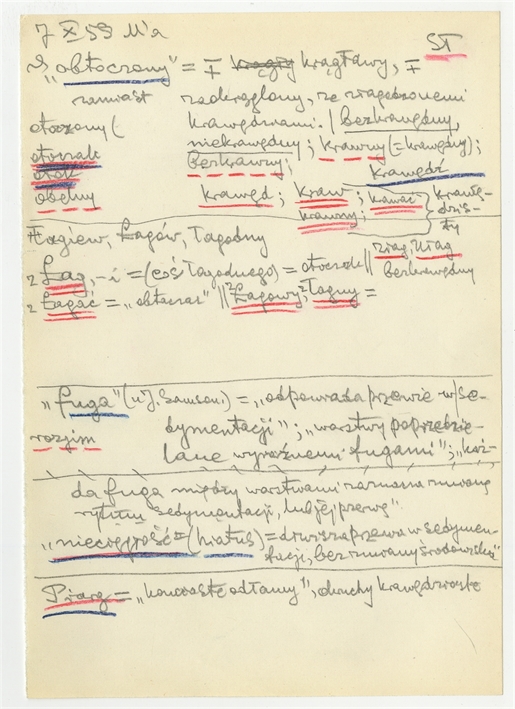 7 X 59 W'a
ST
"obtoczony" = ∓ krągły krągławy, ∓
zamiast zaokrąglony, ze złagodzonemi
otoczony ( krawędziami. / bezkrawędny,
niekrawędny; krawny (= krawędny);
otoczak bezkrawny; krawędź
otok krawęd; kraw; kawać krawę-
obelny krawny; dzis-
ty
Łagiew, Łagów, Łagodny
2 Łag, -i = (coś łagodnego) = otoczak || złag, ułag
bezkrawędny
2 Łagać = "obtaczać" || Łagowy, łagny =
"fuga" (u J. Samson.) = "odpowiada przerwie w se-
dymentacji"; "warstwy poprzedzie-
rozjim lane wyraźnemi fugami"; "każ-
da fuga między warstwami zaznacza zmianę
rytmu sedymentacji, lub jej przerwę".
"nieciągłość = (hiatus) = dłuższa przerwa w sedymen-
tacji, bez zmiany środowiska"
Piarg = "kanciaste odłamy", okruchy krawędziaste